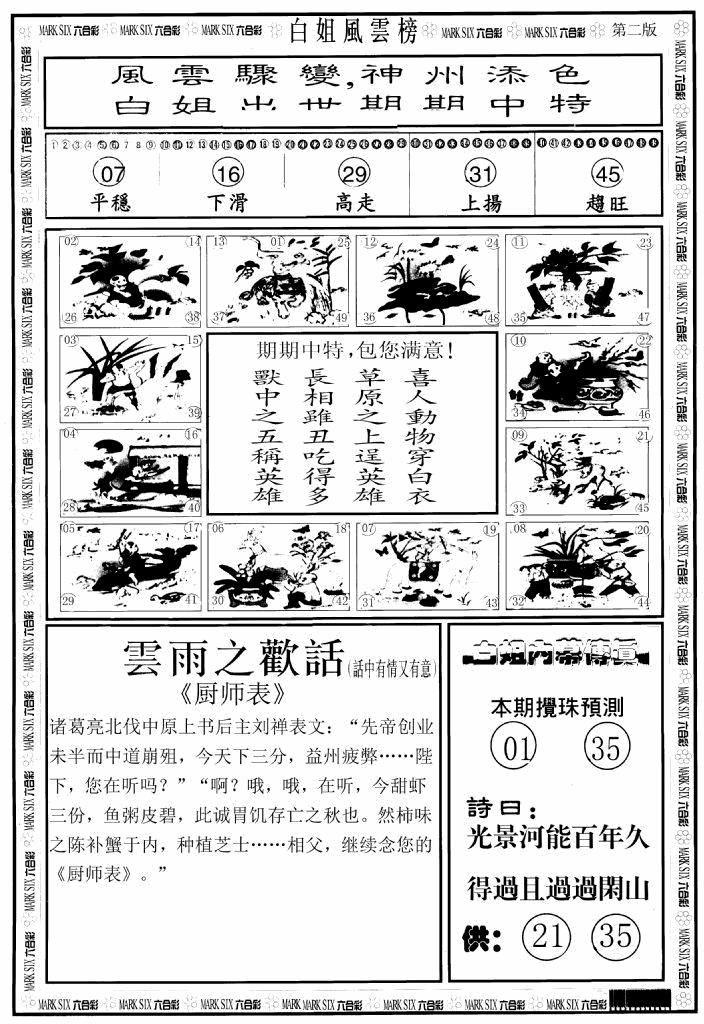 MARK SIX 六合彩 MARK SIX 六合彩 MARK SIX 六合彩 白姐風雲榜 MARK SIX 六合彩 MARK SIX 六合彩 第二版
風雲驟變,神州添色
白姐出世期期中特
07 16 29 31 45
平穩 下滑 高走 上揚 趨旺
02 14 26 38
13 01 25 37 49
12 24 36 48
11 23 35 47
03 15 27 39
10 22 34 46
04 16 28 40
09 21 33 45
05 17 29 41
06 18 30 42
07 19 31 43
08 20 32 44
期期中特,包您满意!
喜人動物穿白衣
草原之上逞英雄
長相雖丑吃得多
獸中之五稱英雄
雲雨之歡話(話中有情又有意)
《厨师表》
诸葛亮北伐中原上书后主刘禅表文：“先帝创业
未半而中道崩殂，今天下三分，益州疲弊……陛
下，您在听吗？”“啊？哦，哦，在听，今甜虾
三份，鱼粥皮碧，此诚胃饥存亡之秋也。然柿味
之陈补蟹于内，种植芝士……相父，继续念您的
《厨师表》。”
白姐内幕傳真
本期攪珠預測
01 35
詩曰：
光景河能百年久
得過且過過閑山
供： 21 35
MARK SIX 六合彩 MARK SIX 六合彩 MARK SIX 六合彩 MARK SIX 六合彩 MARK SIX 六合彩 MARK SIX 六合彩 MARK SIX 六合彩